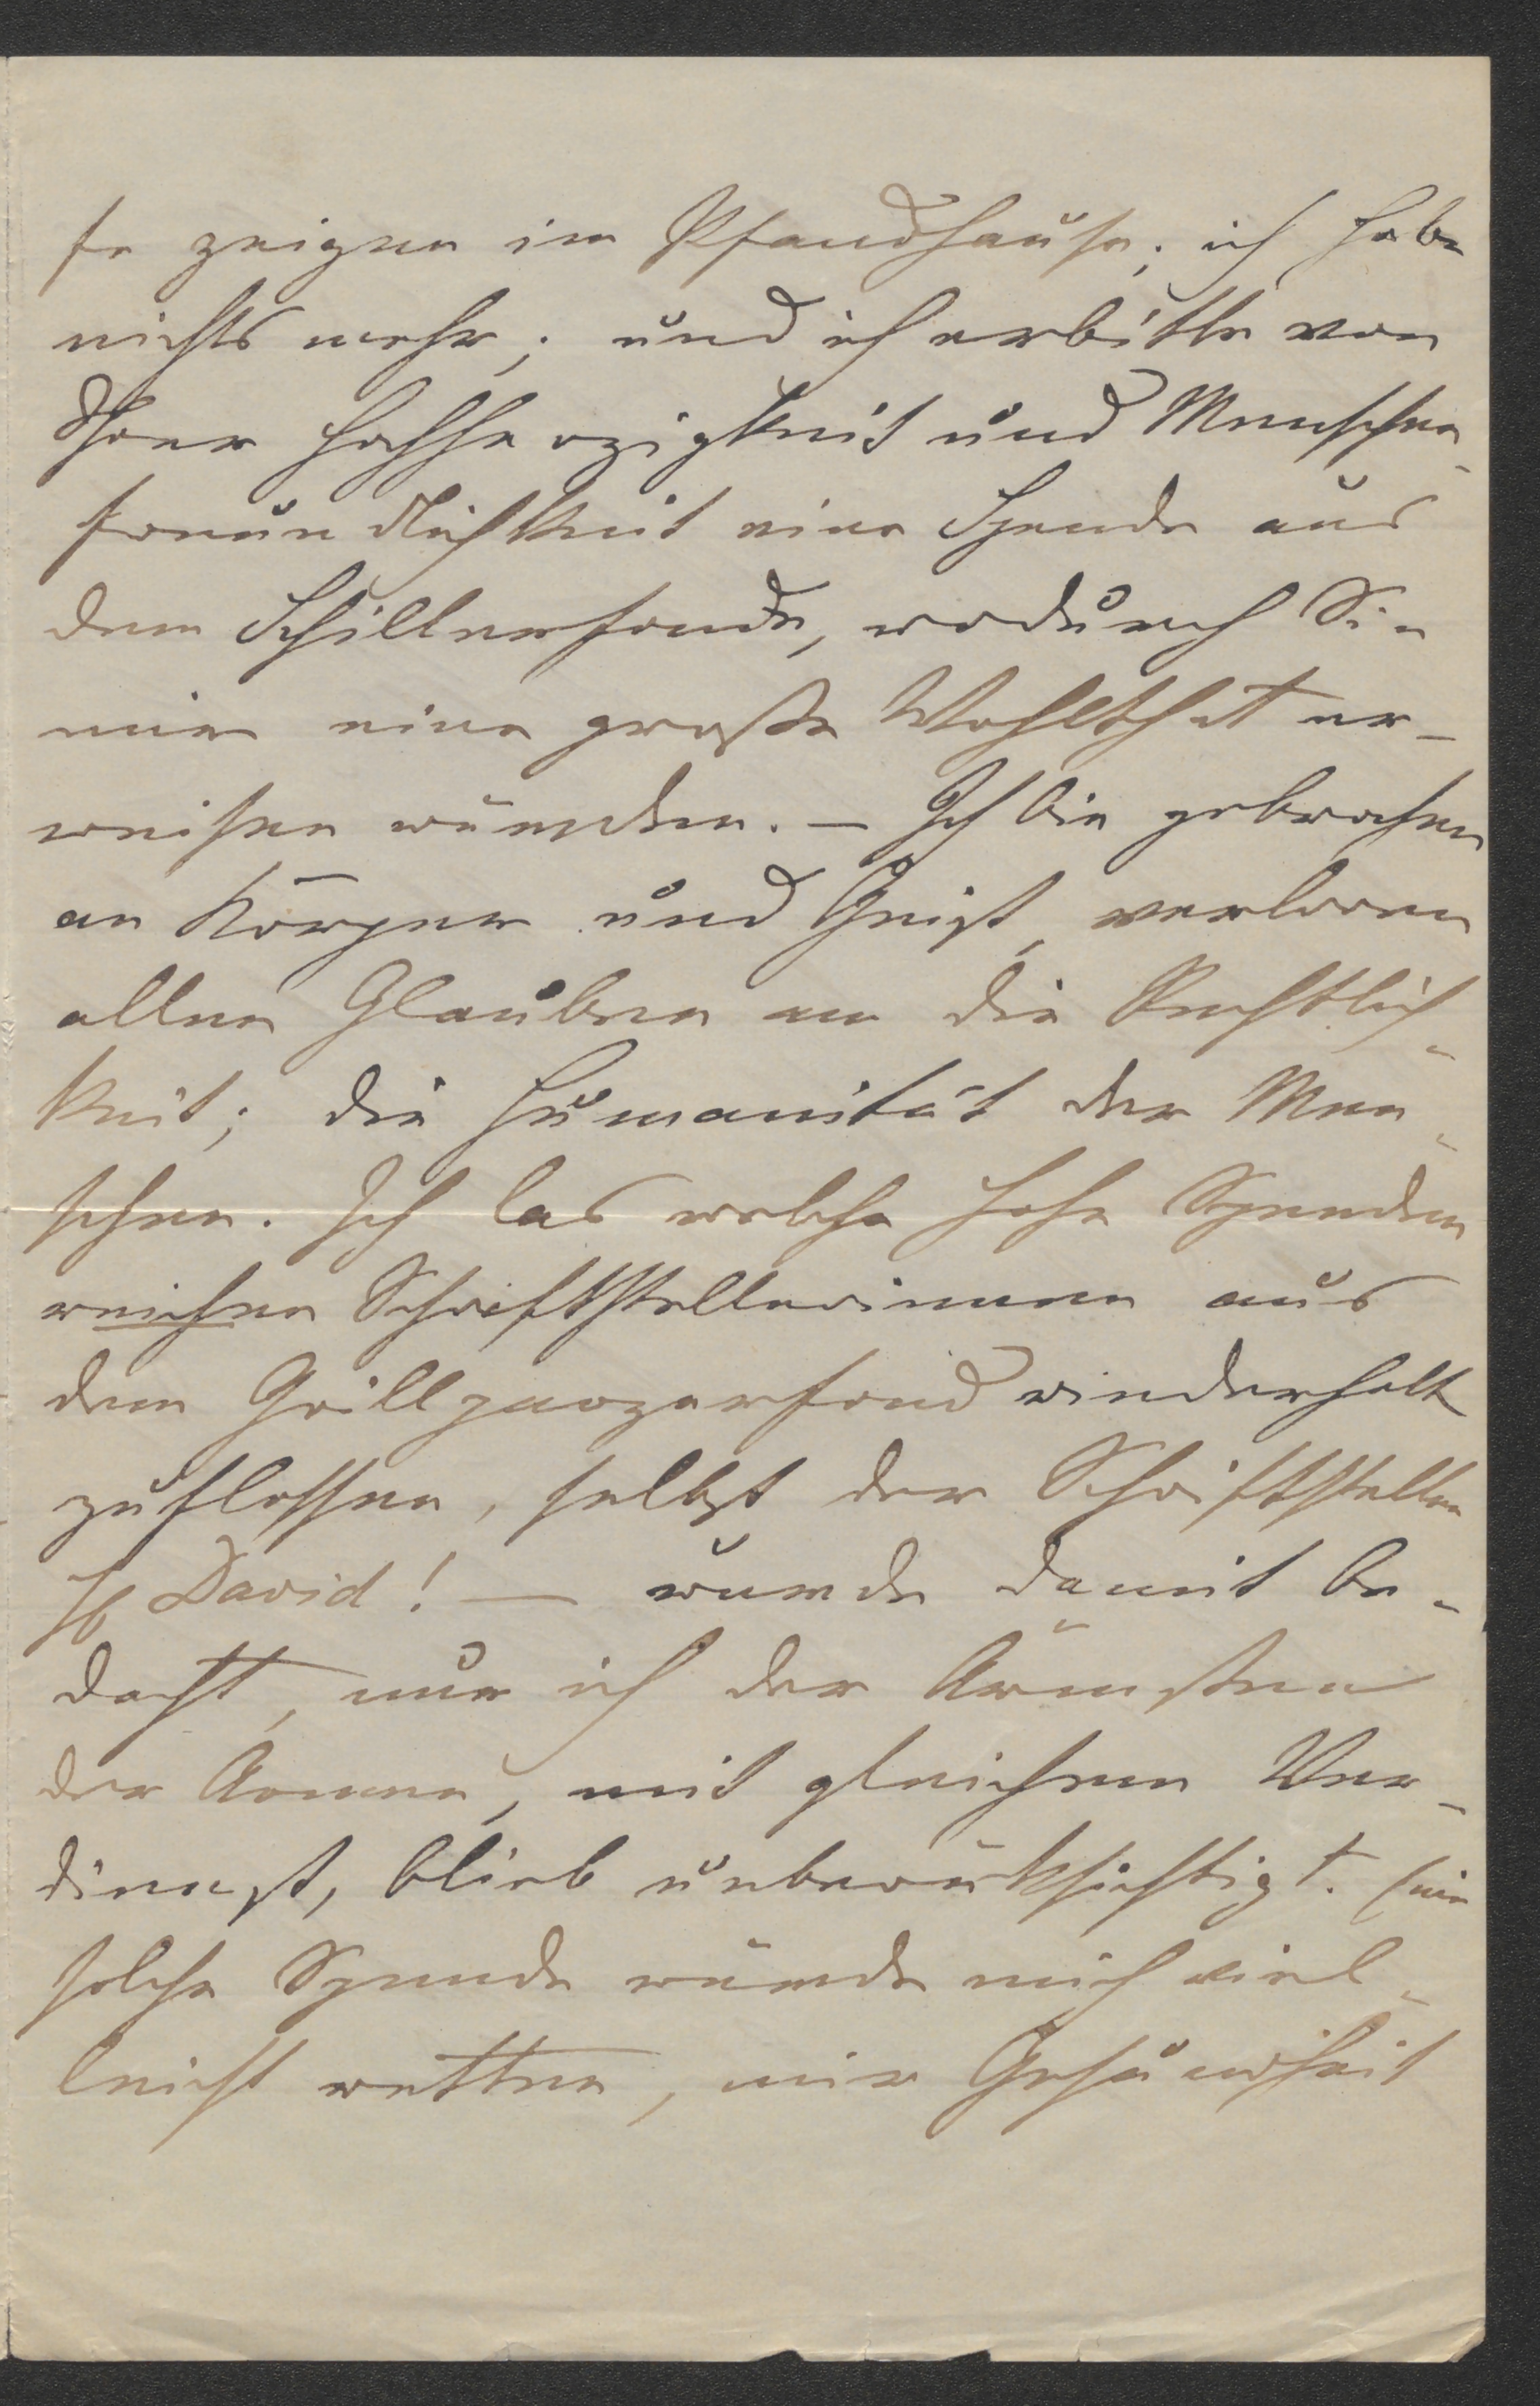 se zeigen im Pfandhause; ich habe
nichts mehr; und ich erbitte von
Ihrer Hochherzigkeit und Menschen-
freundlichkeit eine Spende aus
dem Schillerfonde, wodurch Sie
mir eine große Wohlthat er-
weisen würden. — Ich bin gebrochen
an Körper und Geist, verloren
allen Glauben an die Rechtlich-
keit; die Humanität der Men-
schen. Ich las welche hohe Spenden
reichen Schriftstellerinnen aus
dem Grillparzerfond wiederholt
zuflossen, selbst der Schriftsteller
David! — wurde damit be-
dacht, nur ich der Ärmsten
der Armen, mit gleichem Ver-
dienst, blieb unberücksichtigt. Eine
solche Spende würde mich viel-
leicht retten, mir Gesundheit